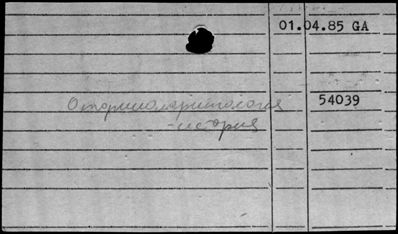 01.04.85 GA
Оториноларингология 54039
-история